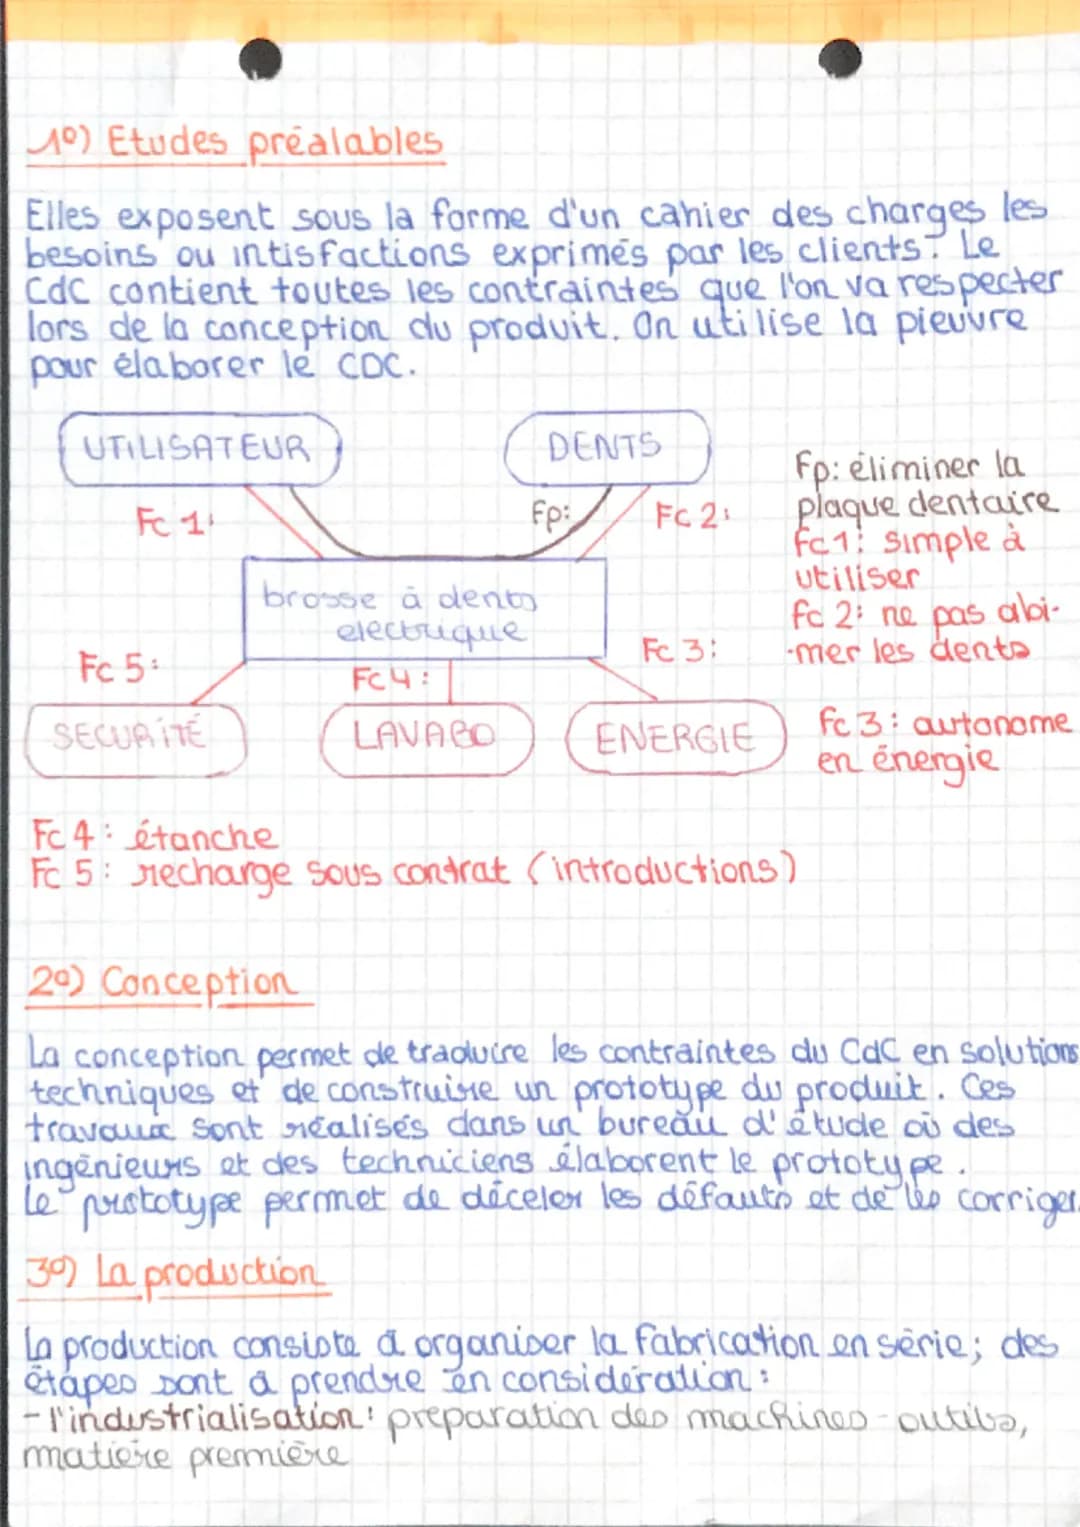 1º) Etudes préalables
Elles exposent sous la forme d'un cahier des charges les
besoins ou intisfactions exprimés par les clients. Le
CdC contient toutes les contraintes que l'on va respecter
lors de la conception du produit. On utilise la pieuvre
pour élaborer le CDC.
UTILISATEUR
DENTS
Fc 1:
Fp:
Fc 2:
Fp: éliminer la
plaque dentaire
Fc1: simple à
utiliser
fc 2: ne pas abi-
-mer les dents
brosse à dents
electrique
Fc 5:
Fc4:
Fc 3:
SECURITÉ
LAVABO
ENERGIE
fc 3: autonome
en énergie
Fc 4: étanche
Fc 5: recharge sous contrat (introductions)
2º) Conception
La conception permet de traduire les contraintes du CdC en solutions
techniques et de construire un prototype du produit. Ces
travaux sont réalisés dans un bureau d'étude où des
ingénieurs et des techniciens élaborent le prototype.
Le prototype permet de déceler les défauts et de les corriger.
3º) La production
La production consiste à organiser la fabrication en série; des
étapes sont à prendre en considération:
- l'industrialisation: preparation des machines-outils,
matière première